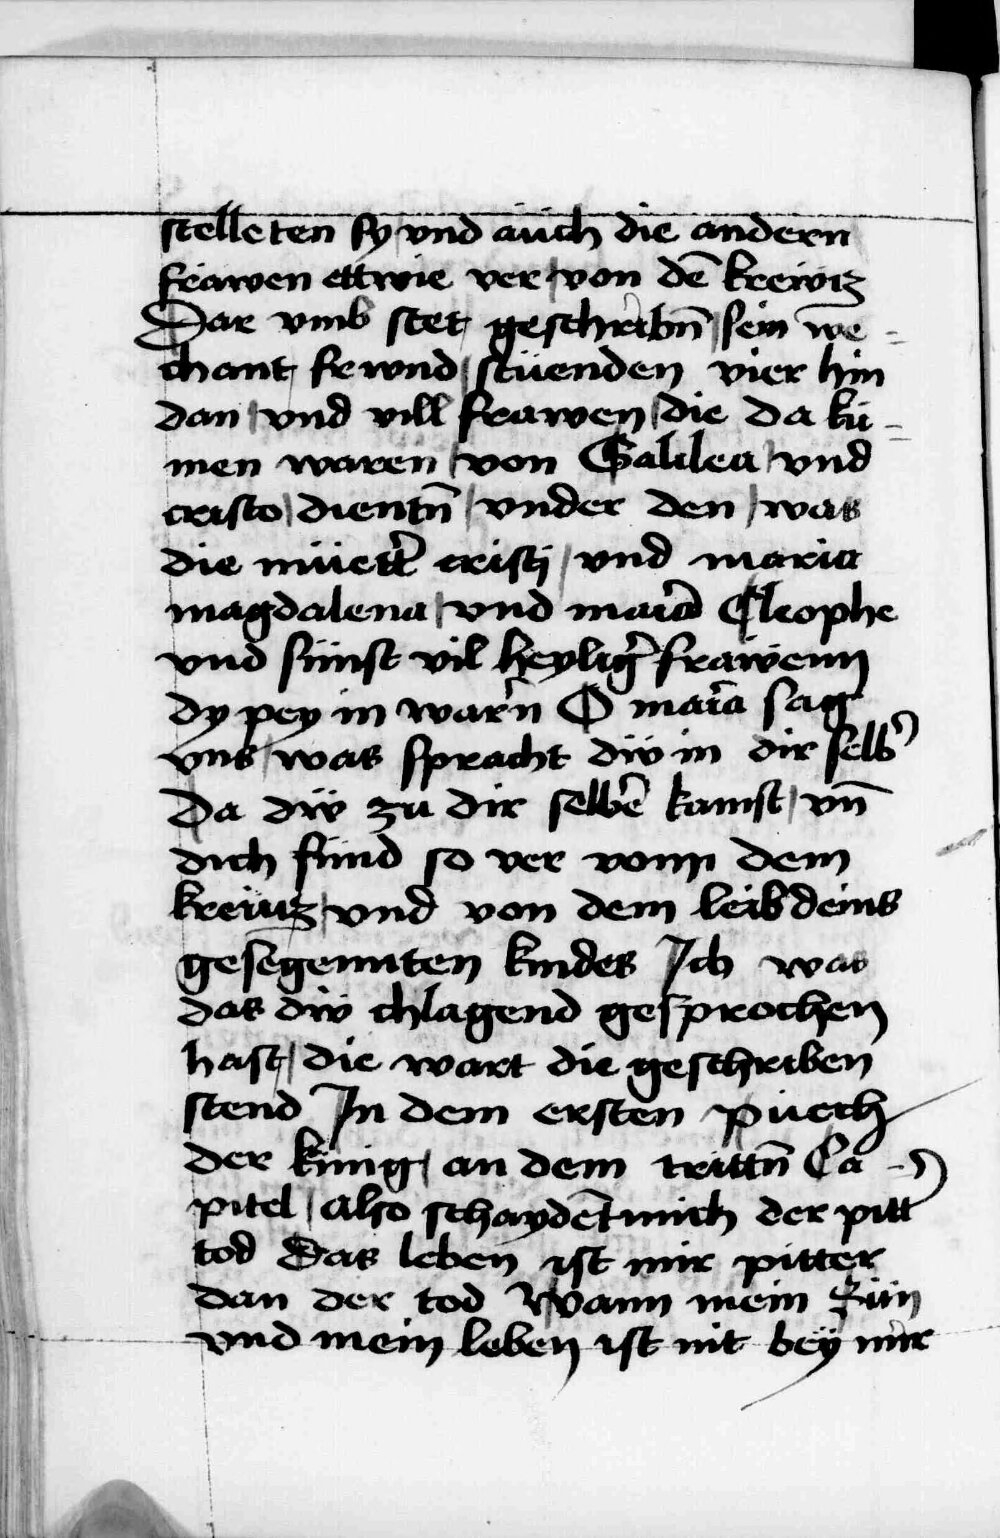 stelleten sy vnd aüch die andern
frawen ettwie ver / von dē krewcz
Dar vmb stet geschribn̄ / sein we-
chant frewnd / stüenden vier hin
dan / vnd vill frawen / die da kü-
men waren / von Galilea / vnd
cristo / dientn̄ / vnder den / was
die müett̉ cristj / vnd maria
magdalena / vnd mar̉ia Cleophe
vnd sünst vil heylig̉ frawenn
dy pey in war̉n O mar̉ia sag
vns / was spracht dẅ in dir selb̉
Da dẅ zu dir selbē kamst / vn̄
dich fünd so ver vonn dem
krewcz / vnd von dem leib deins
gesegennten kindes Ich was
das dẅ chlagend gesprochen
hast / die wart die geschriben
stend In dem ersten püech
der künig / an dem trittn̄ Ca-
pitel / also schaydēt mich der pitt̉
tod Das leben ist mir pitter
dan der tod Wann mein Sün
vnd mein leben ist nit beÿ mir